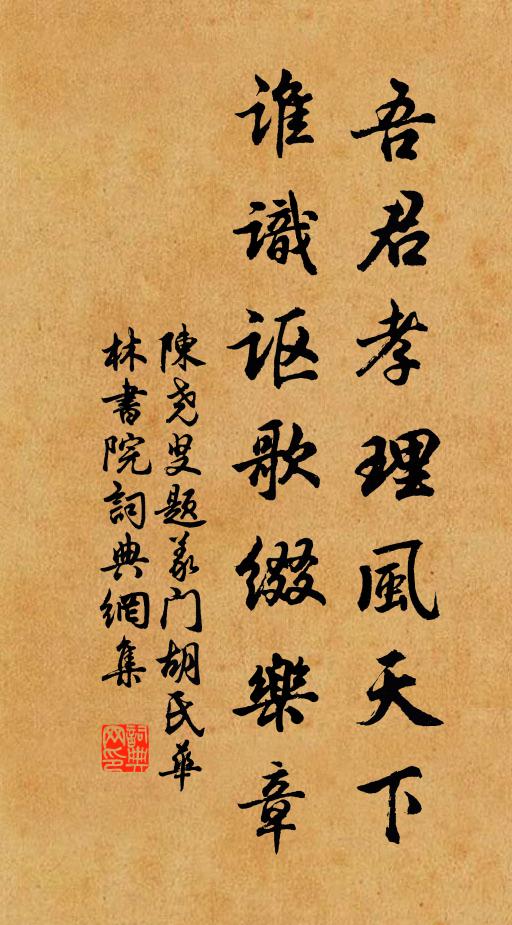 吾君孝理風天下
誰識讴歌綴樂章
陳堯叟題義门胡氏華
林書院詞典網集
詞典网印